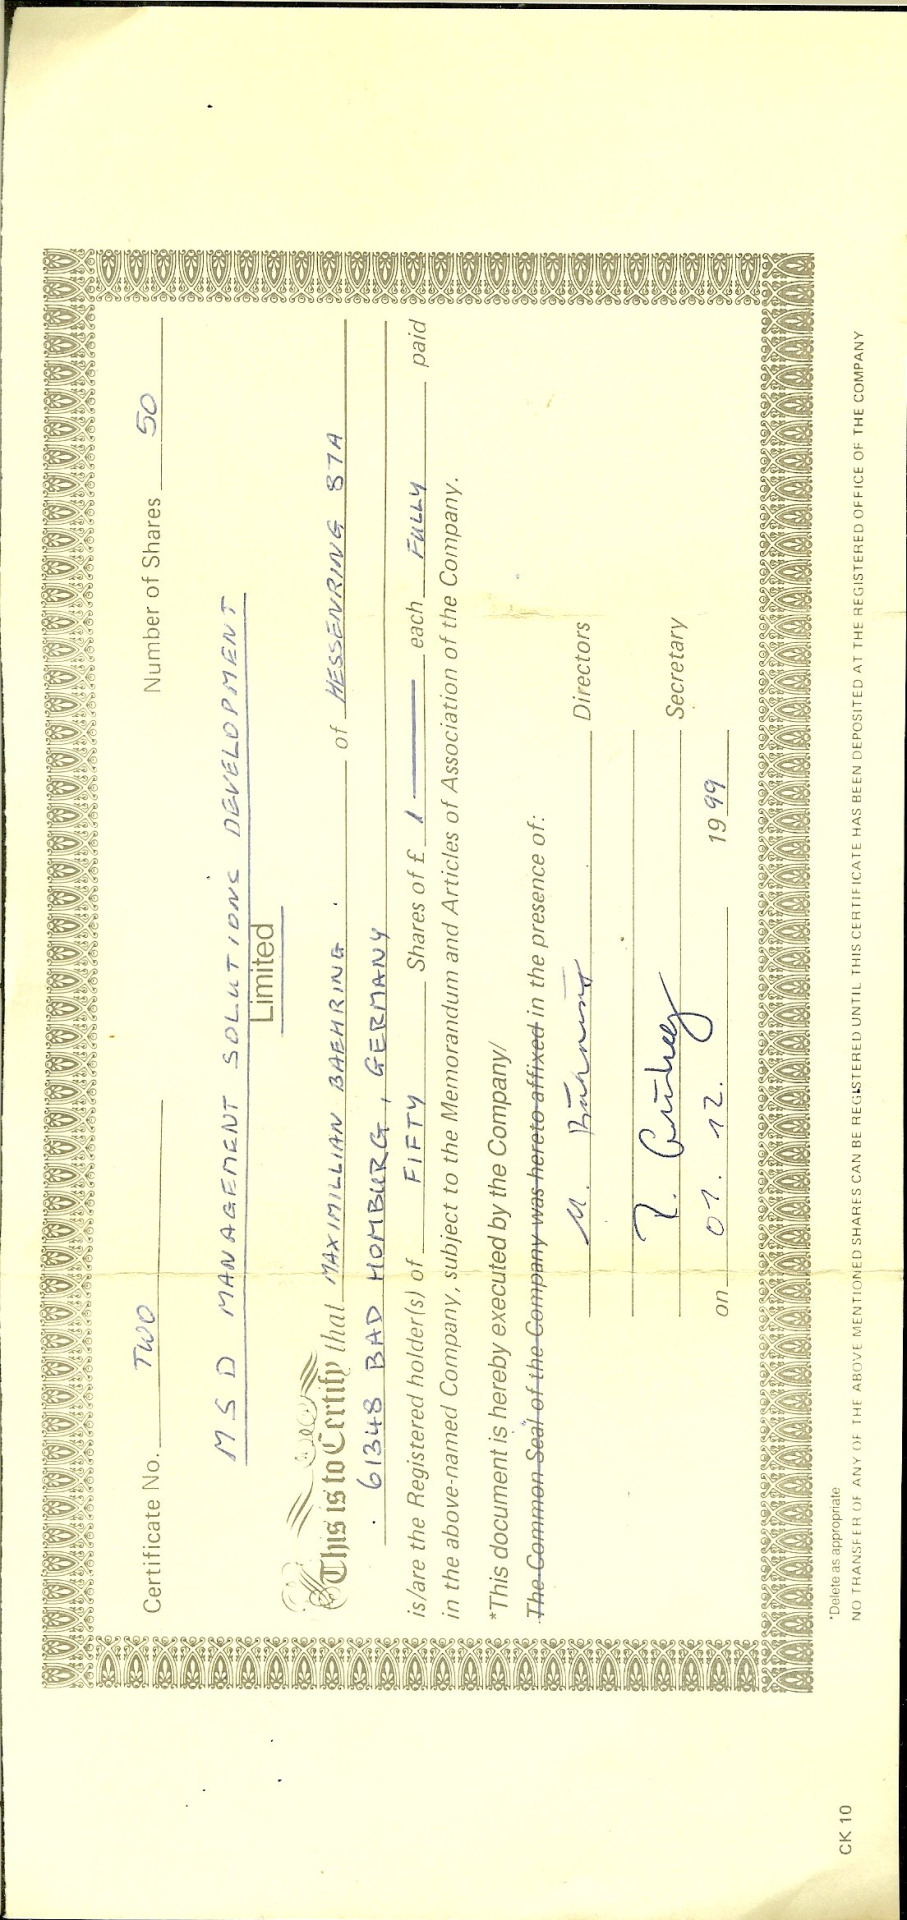 Certificate No. TWO Number of Shares 50
M S D MANAGEMENT SOLUTIONS DEVELOPMENT
Limited
This is to Certify that MAXIMILLIAN BAEHRING of HESSENRING 87A
61348 BAD HOMBURG, GERMANY
is/are the Registered holder(s) of FIFTY Shares of £ 1 — each FULLY paid
in the above-named Company, subject to the Memorandum and Articles of Association of the Company.
*This document is hereby executed by the Company/
The Common Seal of the Company was hereto affixed in the presence of:
M. Directors
Secretary
on 01. 12. 1999
*Delete as appropriate
NO TRANSFER OF ANY OF THE ABOVE MENTIONED SHARES CAN BE REGISTERED UNTIL THIS CERTIFICATE HAS BEEN DEPOSITED AT THE REGISTERED OFFICE OF THE COMPANY
CK 10